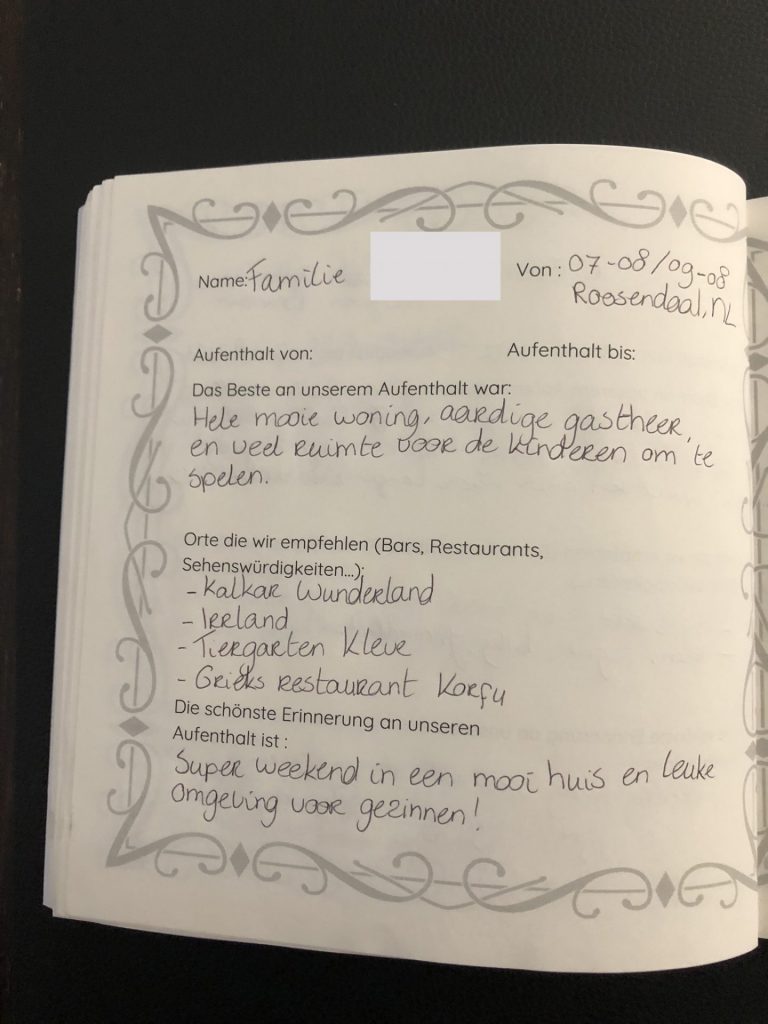 Name: Familie
Von : 07-08/09-08
Roosendaal, NL
Aufenthalt von:
Aufenthalt bis:
Das Beste an unserem Aufenthalt war:
Hele mooie woning, aardige gastheer,
en veel ruimte voor de kinderen om te
spelen.
Orte die wir empfehlen (Bars, Restaurants,
Sehenswürdigkeiten...):
- Kalkar Wunderland
- Irrland
- Tiergarten Kleve
- Grieks restaurant Korfu
Die schönste Erinnerung an unseren
Aufenthalt ist :
Super weekend in een mooi huis en leuke
omgeving voor gezinnen!